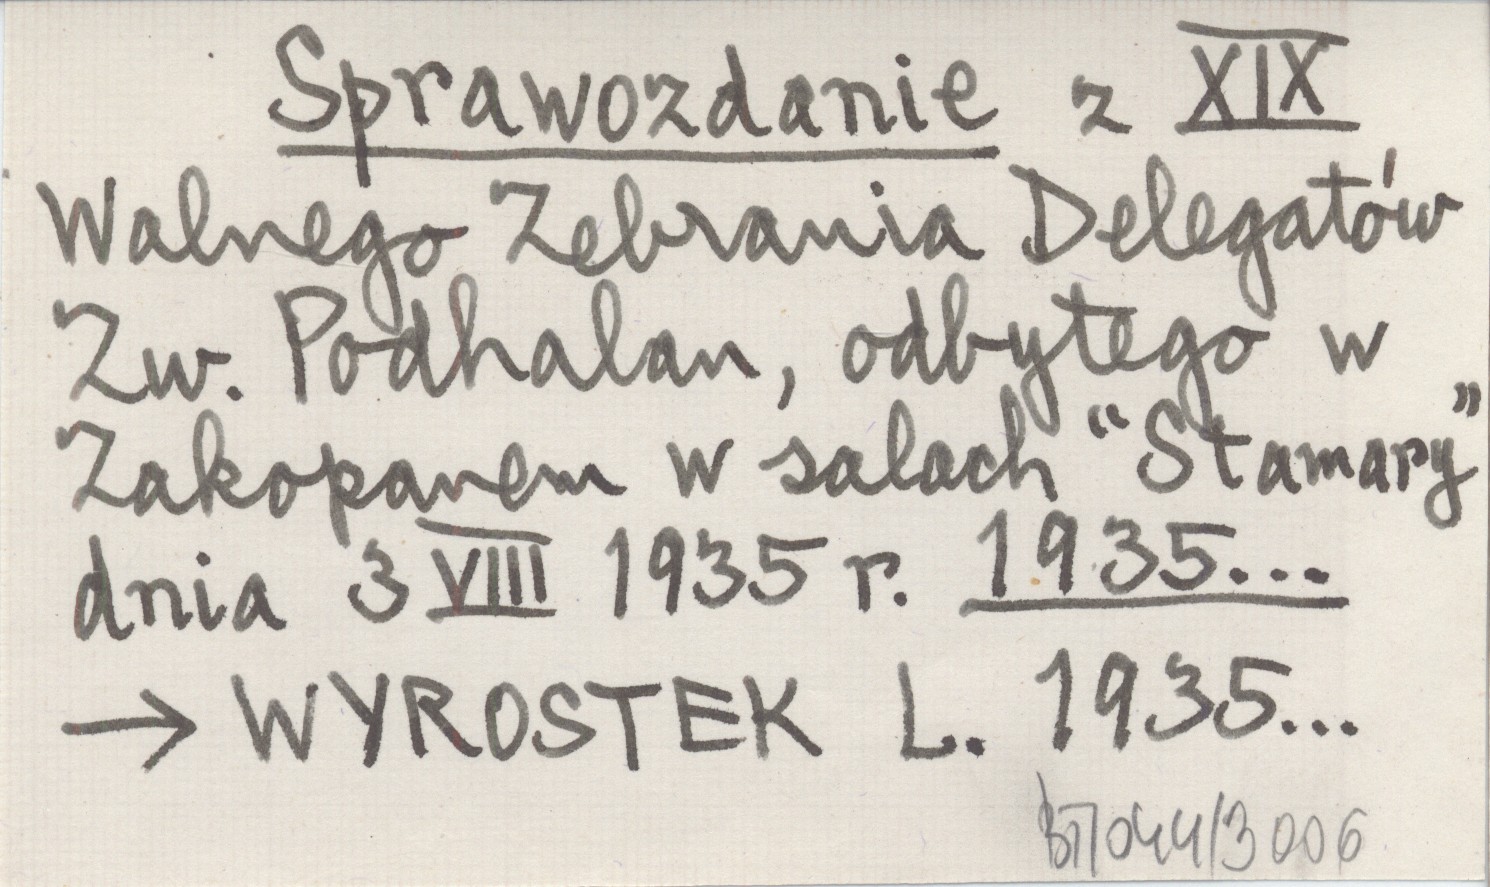 Sprawozdanie z XIX
Walnego Zebrania Delegatów
Zw. Podhalan, odbytego w
Zakopanem w salach “Stamary”
dnia 3 VIII 1935 r. 1935...
→ WYROSTEK L. 1935...
BT/044/3006